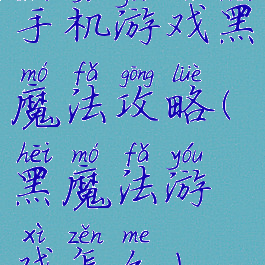 手机游戏黑
mó fǎ gōng lüè
魔法攻略(
hēi mó fǎ yóu
黑魔法游
xì zěn me